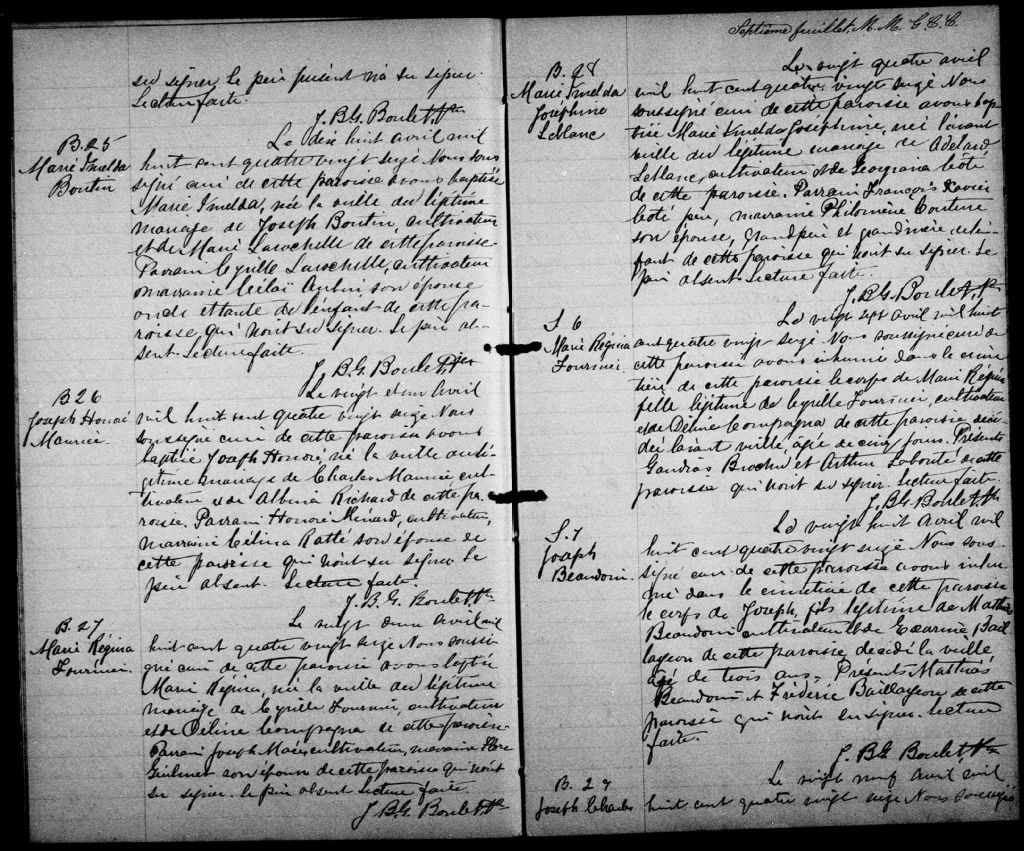 su signer. Le père présent n'a su signer.
Lecture faite.
J. B. G. Boulet, Ptre
B. 25
Marie Imelda
Boutin
Le dix huit avril mil
huit cent quatre vingt seize Nous sous
signé curé de cette paroisse avons baptisé
Marie Imelda, née la veille du légitime
mariage de Joseph Boutin, cultivateur
et de Marie Larochelle de cette paroisse
Parrain Cyrille Larochelle, cultivateur
marraine Aubin, son épouse
oncle et tante de l'enfant de cette pa-
roisse, qui n'ont su signer. Le père ab-
sent. Lecture faite.
J. B. G. Boulet, Ptre
B. 26
Joseph Honoré
Maurice
Le vingt et un avril
mil huit cent quatre vingt seize Nous
soussigné curé de cette paroisse avons
baptisé Joseph Honoré, né la veille du lé-
gitime mariage de Charles Maurice cul-
tivateur et de Albina Richard de cette pa-
roisse. Parrain Honoré Ménard, cultivateur,
marraine Célina Ratté son épouse de
cette paroisse qui n'ont su signer. Le
père absent. Lecture faite.
J. B. G. Boulet, Ptre
B. 27
Marie Régina
Fournier.
Le vingt deux avril mil
huit cent quatre vingt seize Nous soussi-
gné curé de cette paroisse avons baptisé
Marie Régina, née la veille du légitime
mariage de Cyrille Fournier, cultivateur
et de Déline Compagna de cette paroisse
Parrain Joseph cultivateur, marraine
son épouse de cette paroisse qui n'ont
su signer. Le père absent Lecture faite.
J. B. G. Boulet, Ptre
Septième feuillet, M. M. G. C. C.
B. 28
Marie Imelda
Joséphine
Leblanc
Le vingt quatre avril
mil huit cent quatre vingt seize Nous
soussigné curé de cette paroisse avons bap
tisé Marie Imelda Joséphine, née l'avant
veille du légitime mariage de Adelard
Leblanc, cultivateur et de Georgiana Coté
de cette paroisse. Parrain François Xavier
Coté père, marraine Philomène Couture
son épouse, grand père et grand'mère de l'en-
fant de cette paroisse qui n'ont su signer. Le
père absent. Lecture faite.
J. B. G. Boulet, Ptre
S. 6
Marie Régina
Fournier.
Le vingt sept avril mil huit
cent quatre vingt seize Nous soussigné curé de
cette paroisse avons inhumé dans le cime
tière de cette paroisse le corps de Marie Régina
fille légitime de Cyrille Fournier, cultivateur
et de Déline Compagna de cette paroisse décé
dée l'avant veille, âgée de cinq jours. Présents
Brochu et Arthur Labonté de cette
paroisse qui n'ont su signer. Lecture faite.
J. B. G. Boulet, Ptre
S. 7
Joseph
Beaudoin.
Le vingt huit avril mil
huit cent quatre vingt seize Nous sous-
signé curé de cette paroisse avons inhu
mé dans le cimetière de cette paroisse
le corps de Joseph, fils légitime de Mathias
Beaudoin cultivateur et de Exarine Bail
largeon de cette paroisse, décédé la veille
âgé de trois ans. Présents Mathias
Beaudoin et Fréderic Baillargeon de cette
paroisse qui n'ont su signer. Lecture
faite.
J. B. G. Boulet, Ptre
B. 29
Joseph Charles
Le vingt neuf avril mil
huit cent quatre vingt seize Nous soussigné